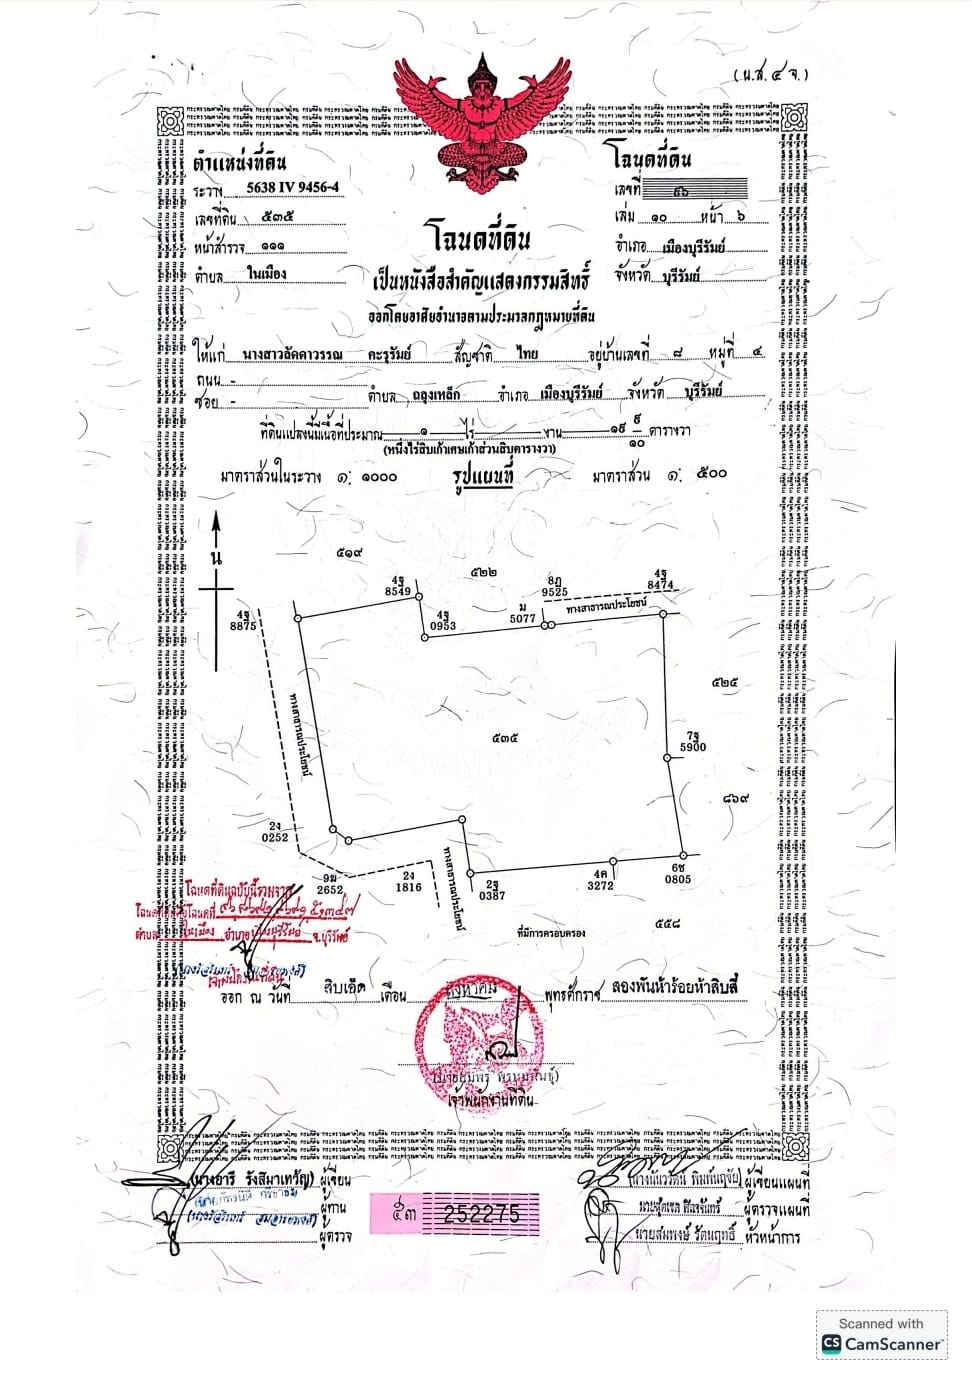 (น.ส. ๔ จ.)
ตำแหน่งที่ดิน
ระวาง 5638 IV 9456-4
เลขที่ดิน ๕๓๕
หน้าสำรวจ ๑๑๑
ตำบล ในเมือง
โฉนดที่ดิน
เลขที่ ๕๖
เล่ม ๑๐ หน้า ๖
อำเภอ เมืองบุรีรัมย์
จังหวัด บุรีรัมย์
โฉนดที่ดิน
เป็นหนังสือสำคัญแสดงกรรมสิทธิ์
ออกโดยอาศัยอำนาจตามประมวลกฎหมายที่ดิน
ให้แก่ นางสาวลัดดาวรรณ คะรุรัมย์ สัญชาติ ไทย อยู่บ้านเลขที่ ๘ หมู่ที่ ๔
ถนน -
ซอย - ตำบล ถลุงเหล็ก อำเภอ เมืองบุรีรัมย์ จังหวัด บุรีรัมย์
ที่ดินแปลงนี้มีเนื้อที่ประมาณ ๑ ไร่ - งาน ๑๙ ๙/๑๐ ตารางวา
(หนึ่งไร่สิบเก้าเศษเก้าส่วนสิบตารางวา)
มาตราส่วนในระวาง ๑: ๑๐๐๐ รูปแผนที่ มาตราส่วน ๑: ๕๐๐
น
๕๑๙
๕๒๒
4ฐ
8549
8ฎ
9525
4ฐ
8474
ทางสาธารณประโยชน์
4ฐ
8875
4ฐ
0953
ม
5077
๕๒๕
ทางสาธารณประโยชน์
๕๓๕
7ฐ
5900
๘๖๙
2ง
0252
9ฆ
2652
2ง
1816
ทางสาธารณประโยชน์
2ฐ
0387
4ค
3272
6ช
0805
๕๕๘
ที่มีการครอบครอง
โฉนดที่ดินฉบับนี้รวมจาก
ตำบล ในเมือง อำเภอ เมืองบุรีรัมย์ จ.บุรีรัมย์
ออก ณ วันที่ สิบเอ็ด เดือน สิงหาคม พุทธศักราช สองพันห้าร้อยห้าสิบสี่
เจ้าพนักงานที่ดิน
(นางอารี รังสิมาเทวัญ) ผู้เขียน
ผู้ทาน
ผู้ตรวจ
๕๓ 252275
ผู้เขียนแผนที่
ผู้ตรวจแผนที่
นายสมพงษ์ รัตนฤทธิ์ หัวหน้าการ
Scanned with
CS CamScanner